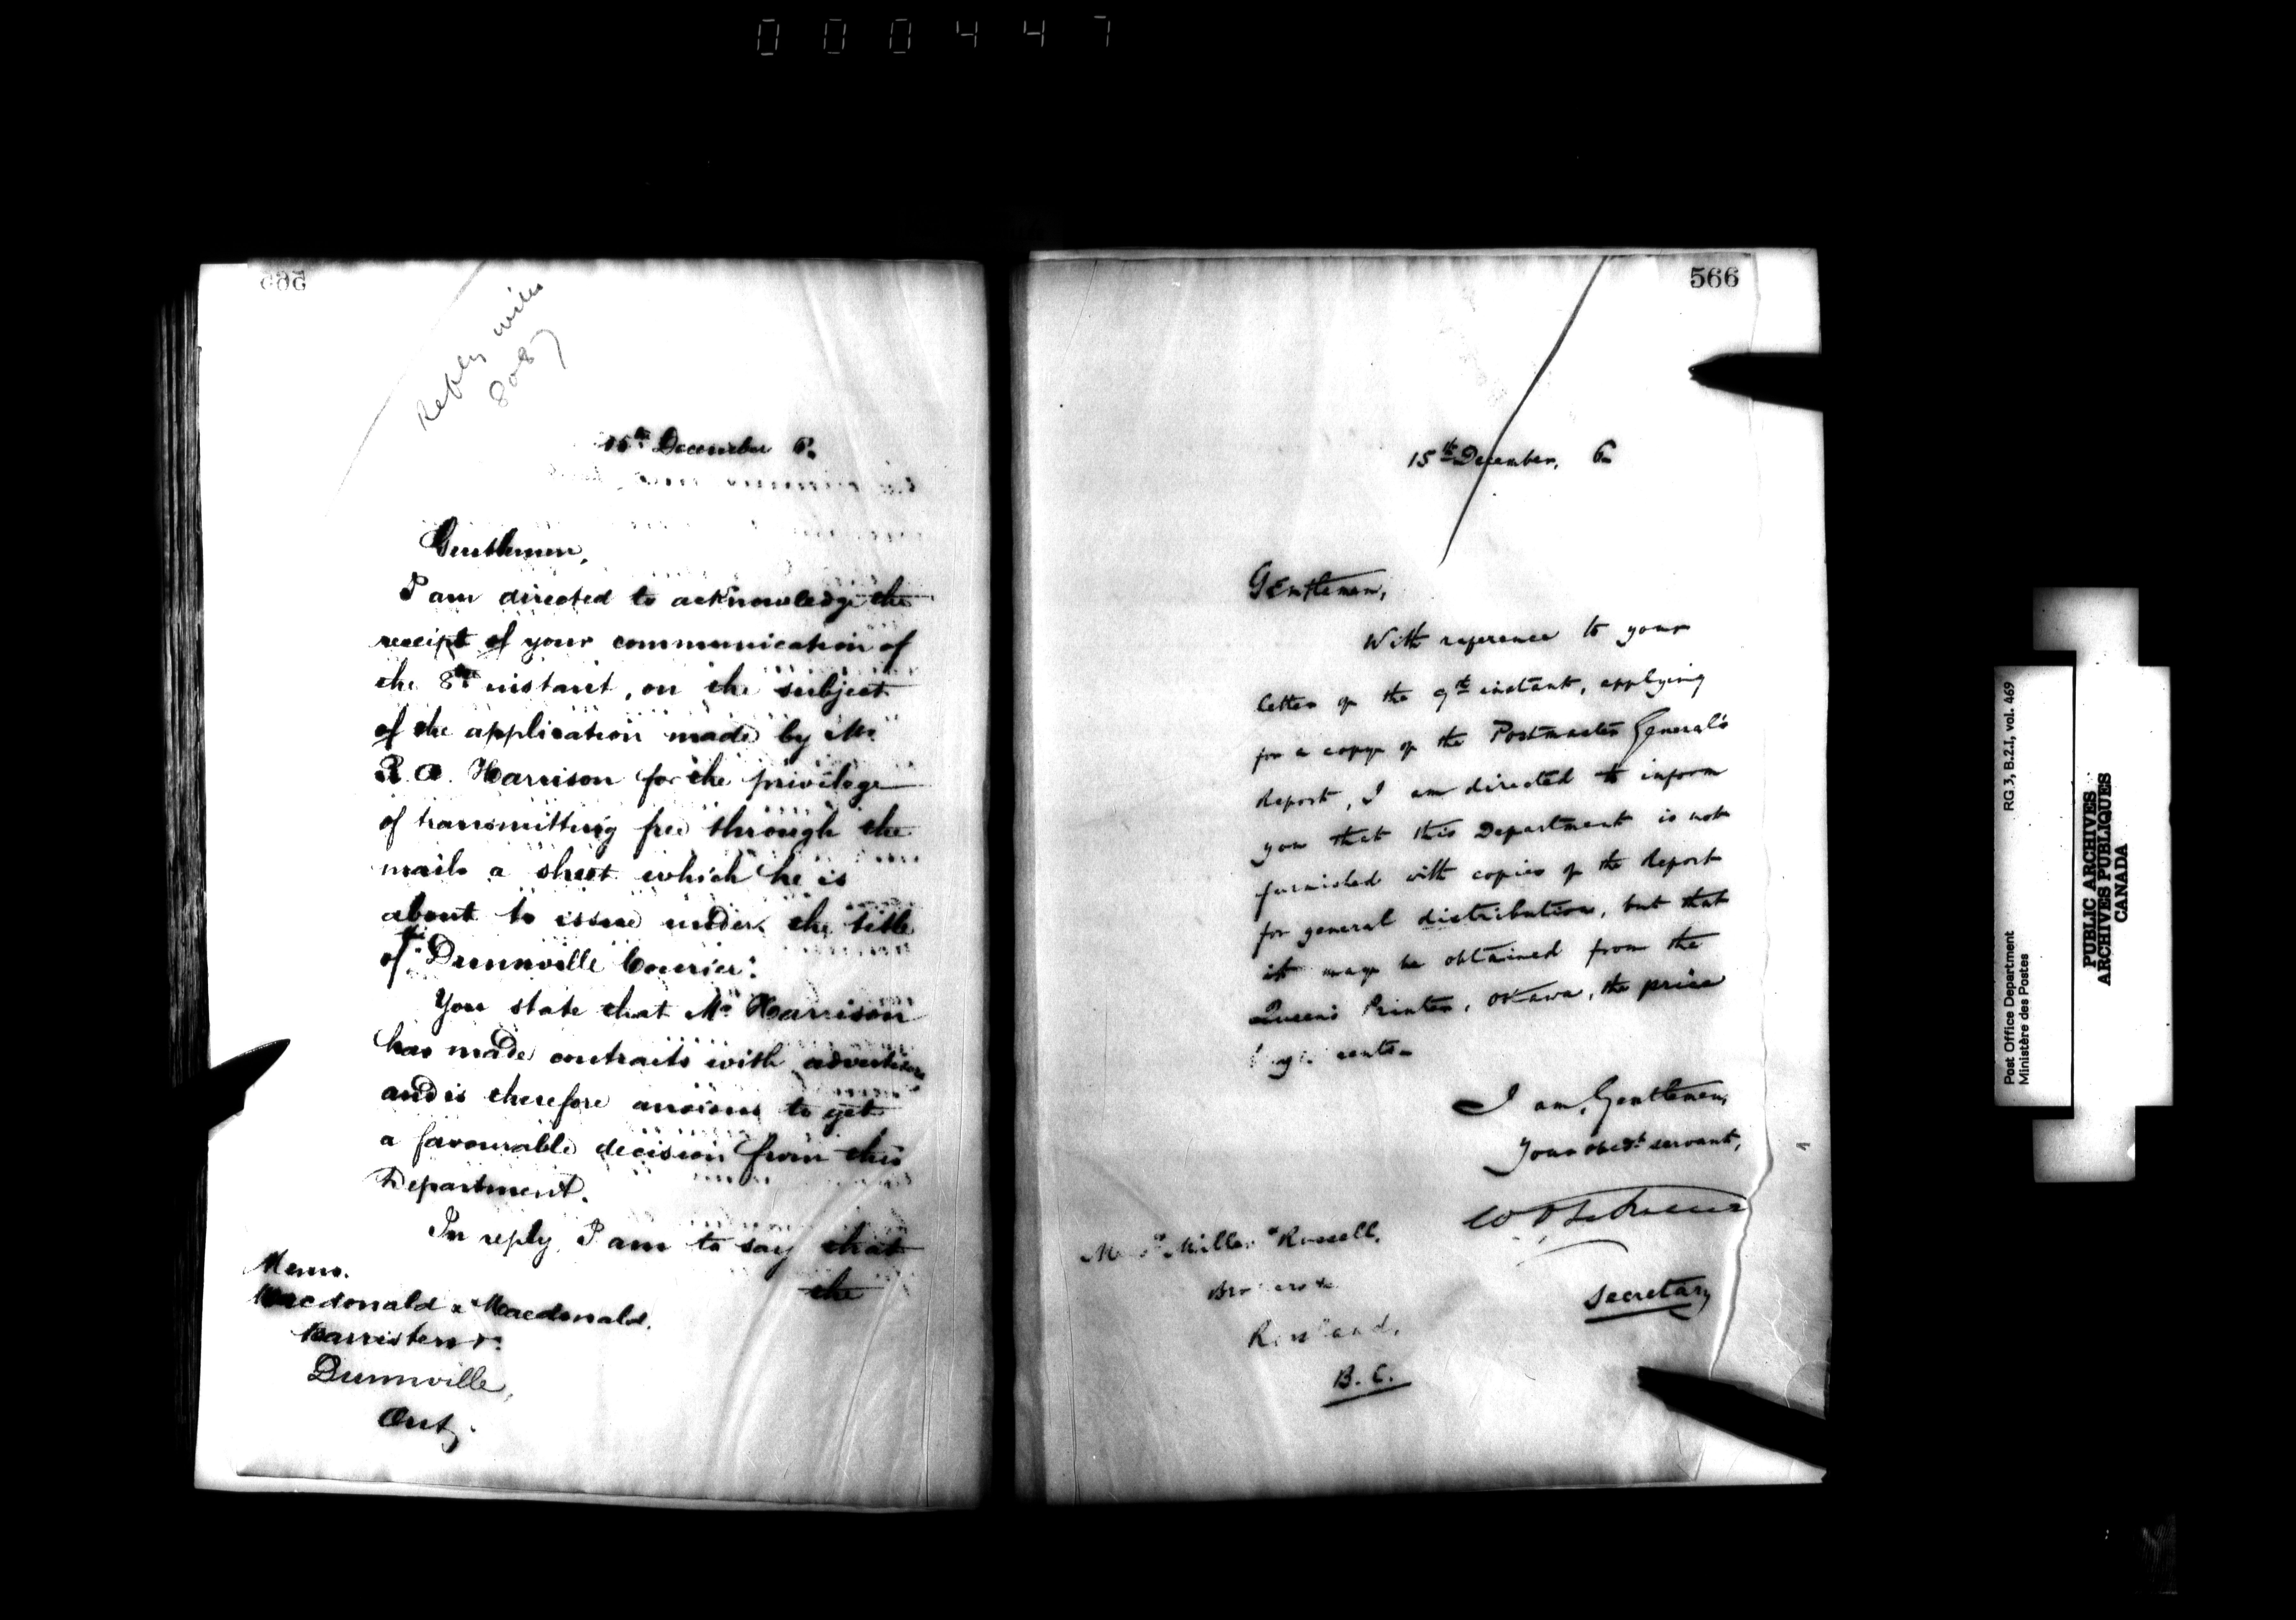 000447
565
Reply with
8087
15th December 6.
Gentlemen,
I am directed to acknowledge the
receipt of your communication of
the 8th instant, on the subject
of the application made by Mr
R. A. Harrison for the privilege
of transmitting free through the
mails a sheet which he is
about to issue under the title
of "Dunnville Courier".
You state that Mr Harrison
has made contracts with advertisers
and is therefore anxious to get
a favourable decision from this
Department.
In reply, I am to say that
the
Messrs.
Macdonald & Macdonald.
Barristers &c.
Dunnville,
Ont.
566
15th December, 6
Gentlemen,
With reference to your
letter of the 9th instant, applying
for a copy of the Postmaster General's
Report, I am directed to inform
you that this Department is not
furnished with copies of the Report
for general distribution, but that
it may be obtained from the
Queen's Printer, Ottawa, the price
cents.
I am, Gentlemen,
Your obedt. servant,
Secretary
Messrs Miller & Russell,
Brokers &c
Rossland,
B. C.
Post Office Department RG 3, B.2.1, vol. 469
Ministère des Postes
PUBLIC ARCHIVES
ARCHIVES PUBLIQUES
CANADA